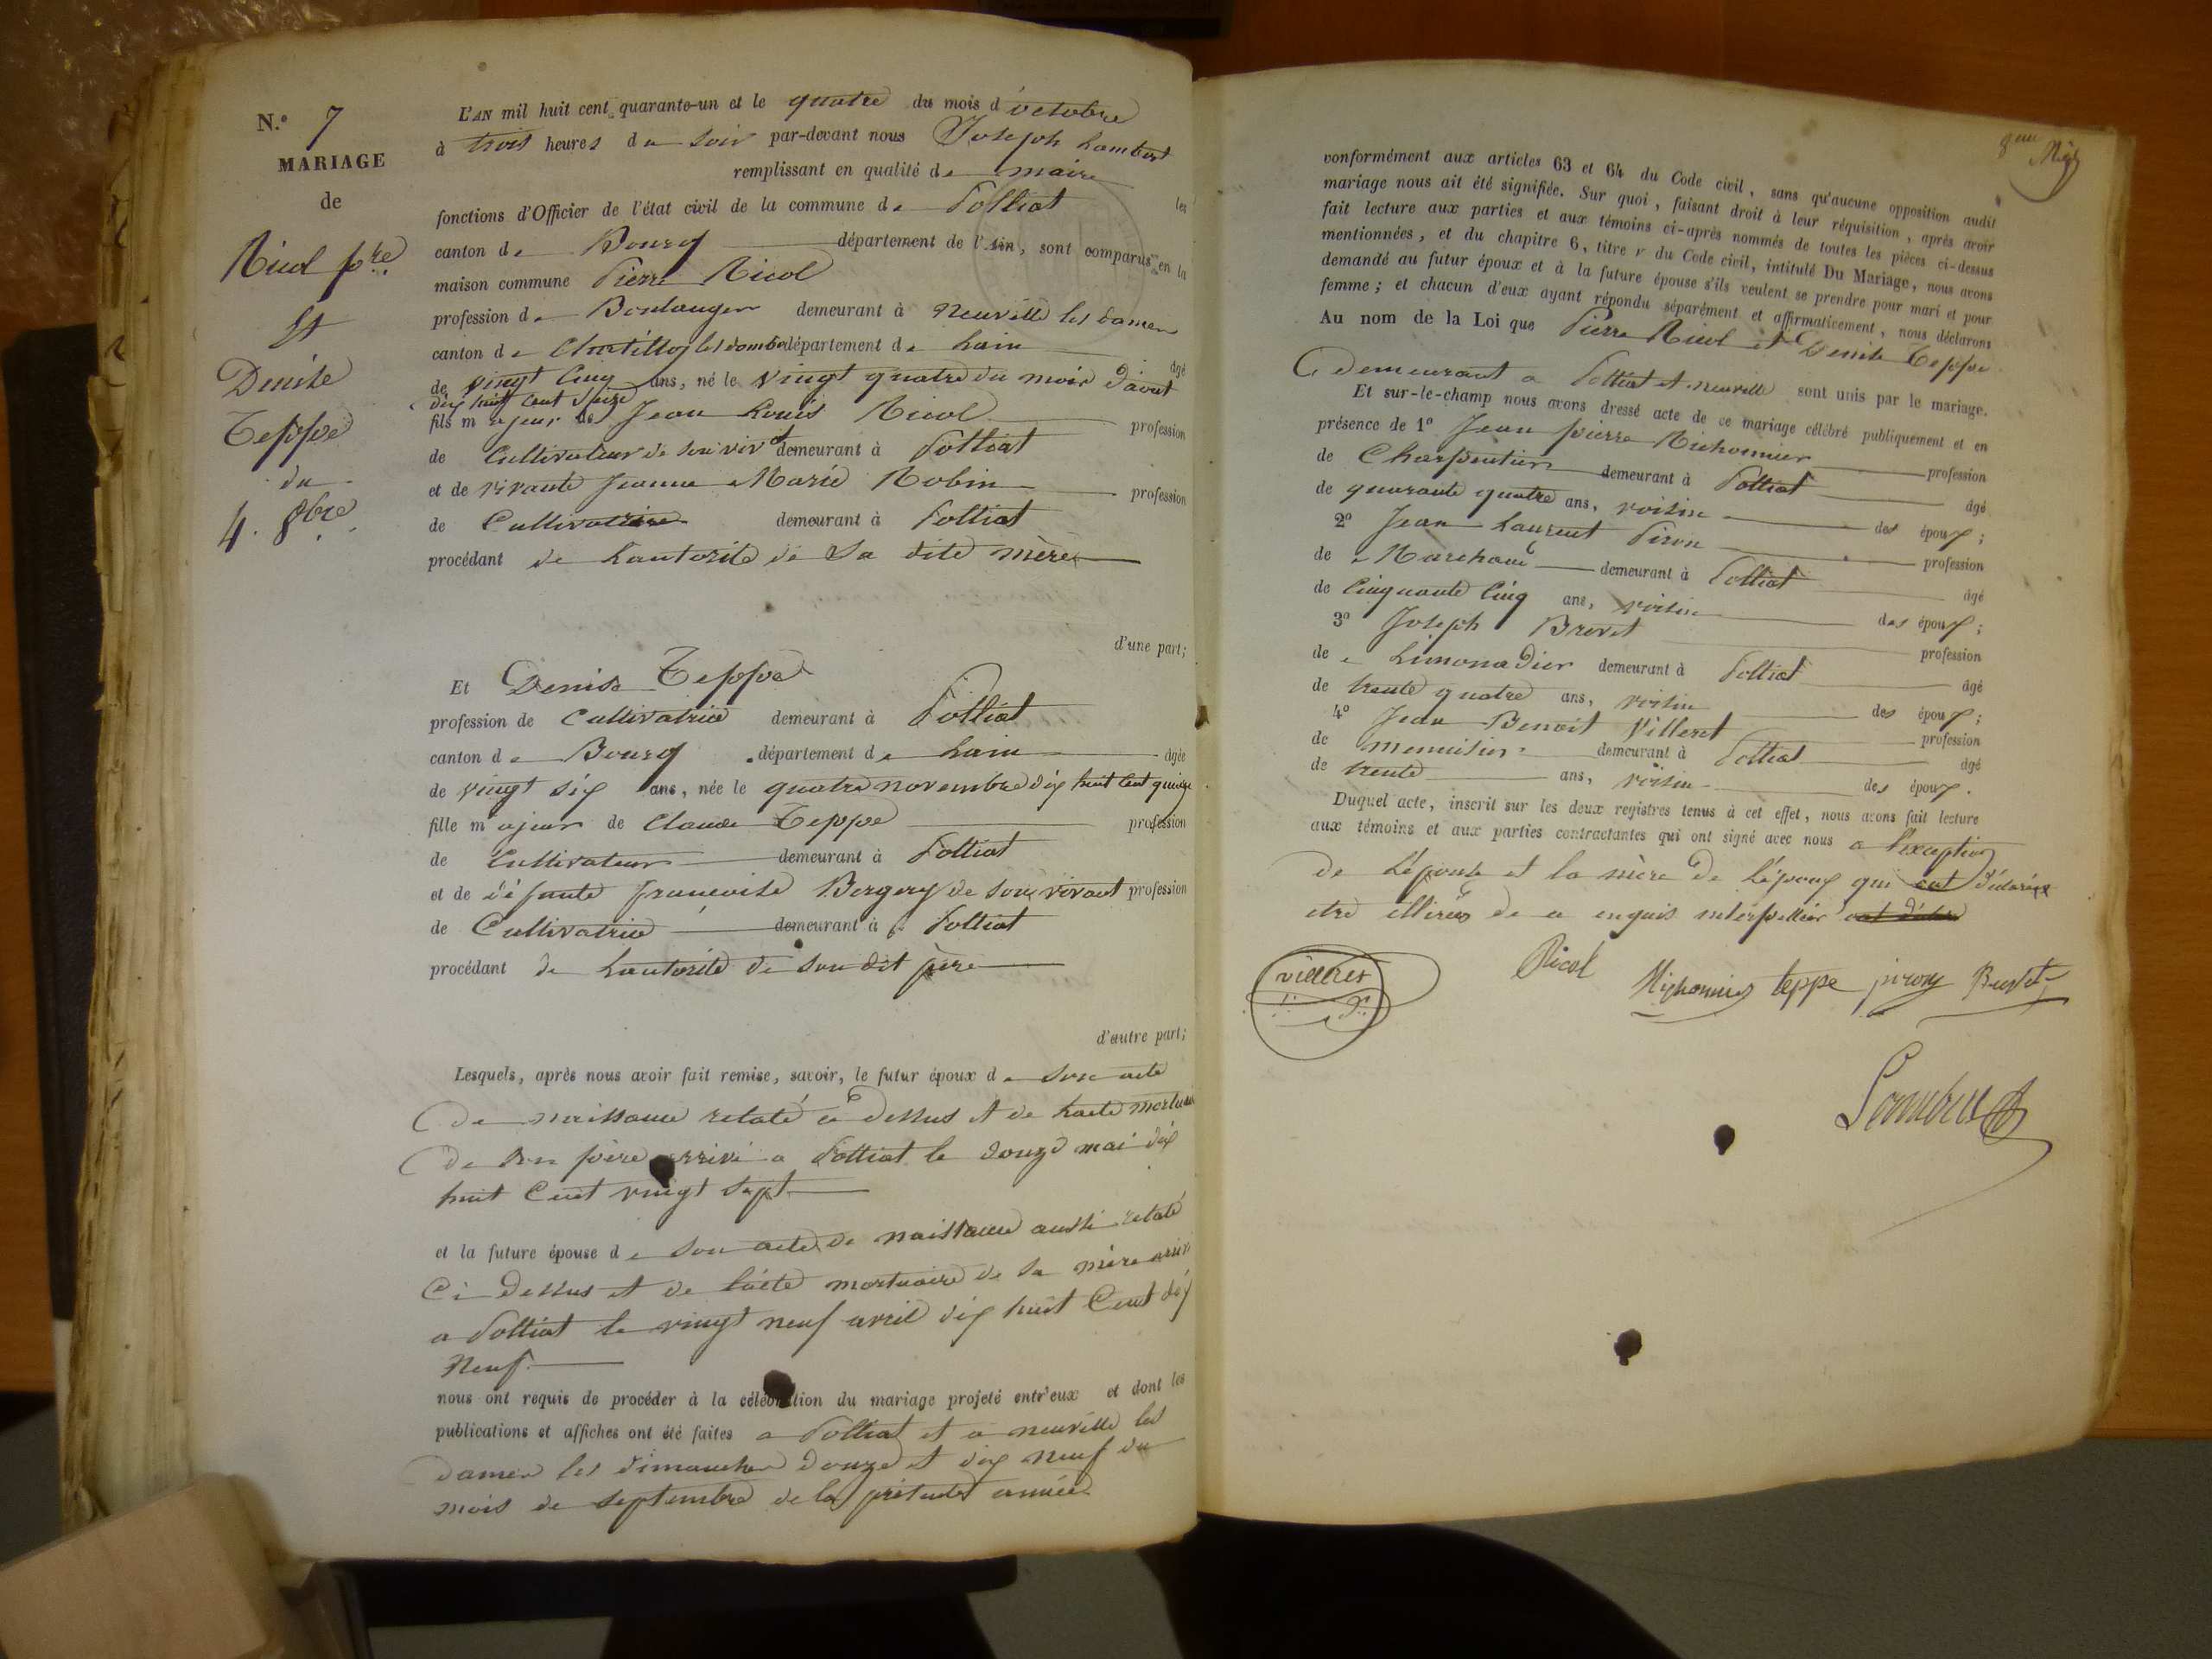 N.o 7
MARIAGE
de
Nicol pre
et
Denise
Teppe
du
4. 8bre.
L'AN mil huit cent quarante-un et le quatre du mois d'octobre
à trois heures du soir par-devant nous Joseph Lambert
remplissant en qualité de maire les
fonctions d'Officier de l'état civil de la commune de Polliat
canton de Bourg département de l'Ain, sont comparus en la
maison commune Pierre Nicol
profession de Boulanger demeurant à Neuville les Damer
canton de Chatillon les dombe département de Lain âgé
de vingt cinq ans, né le vingt quatre du mois d'aout
dix huit cent seize
fils majeur de Jean Louis Nicol profession
de Cultivateur de son vivant demeurant à Polliat
et de vivante Jeanne Marie Robin profession
de Cultivatrice demeurant à Polliat
procédant de Lautorité de Sa dite mère
d'une part;
Et Denise Teppe
profession de Cultivatrice demeurant à Polliat
canton de Bourg département de Lain âgée
de vingt six ans, née le quatre novembre dix huit cent quinze
fille majeur de Claude Teppe profession
de Cultivateur demeurant à Polliat
et de défunte francoise Bergery de son vivant profession
de Cultivatrice demeurant à Polliat
procédant de Lautorité de son dit père
d'autre part;
Lesquels, après nous avoir fait remise, savoir, le futur époux de son acte
de naissance relaté ci dessus et de lacte mortuaire
de son père arrivé a Polliat le douze mai dix
huit Cent vingt sept
et la future épouse de son acte de naissance aussi relaté
Ci Dessus et de lacte mortuaire de sa mère arrivé
a Polliat le vingt neuf avril dix huit Cent dix
Neuf
nous ont requis de procéder à la célébration du mariage projeté entr'eux et dont les
publications et affiches ont été faites a Polliat et a neuville les
damer les dimanches douze et dix neuf du
mois de septembre de la présente année
8eme
conformément aux articles 63 et 64 du Code civil, sans qu'aucune opposition audit
mariage nous ait été signifiée. Sur quoi, faisant droit à leur réquisition, après avoir
fait lecture aux parties et aux témoins ci-après nommés de toutes les pièces ci-dessus
mentionnées, et du chapitre 6, titre v du Code civil, intitulé Du Mariage, nous avons
demandé au futur époux et à la future épouse s'ils veulent se prendre pour mari et pour
femme; et chacun d'eux ayant répondu séparément et affirmativement, nous déclarons
Au nom de la Loi que Pierre Nicol et Denise Teppe
demeurant a Polliat et neuville sont unis par le mariage.
Et sur-le-champ nous avons dressé acte de ce mariage célébré publiquement et en
présence de 1o Jean pierre Nichonnier profession
de Charpentier demeurant à Polliat âgé
de quarante quatre ans, voisin des époux;
2o Jean Laurent Piron profession
de Marchand demeurant à Polliat âgé
de Cinquante Cinq ans, voisin des époux;
3o Joseph Brevet profession
de Limonadier demeurant à Polliat âgé
de trente quatre ans, voisin des époux;
4o Jean Benoit Villeret profession
de menuisier demeurant à Polliat âgé
de trente ans, voisin des époux.
Duquel acte, inscrit sur les deux registres tenus à cet effet, nous avons fait lecture
aux témoins et aux parties contractantes qui ont signé avec nous a l'exception
de L'épouse et la mère de L'époux qui ont déclaré
etre illirés de ce enquis interpellés
Nicol teppe piron Brevet
Lambert